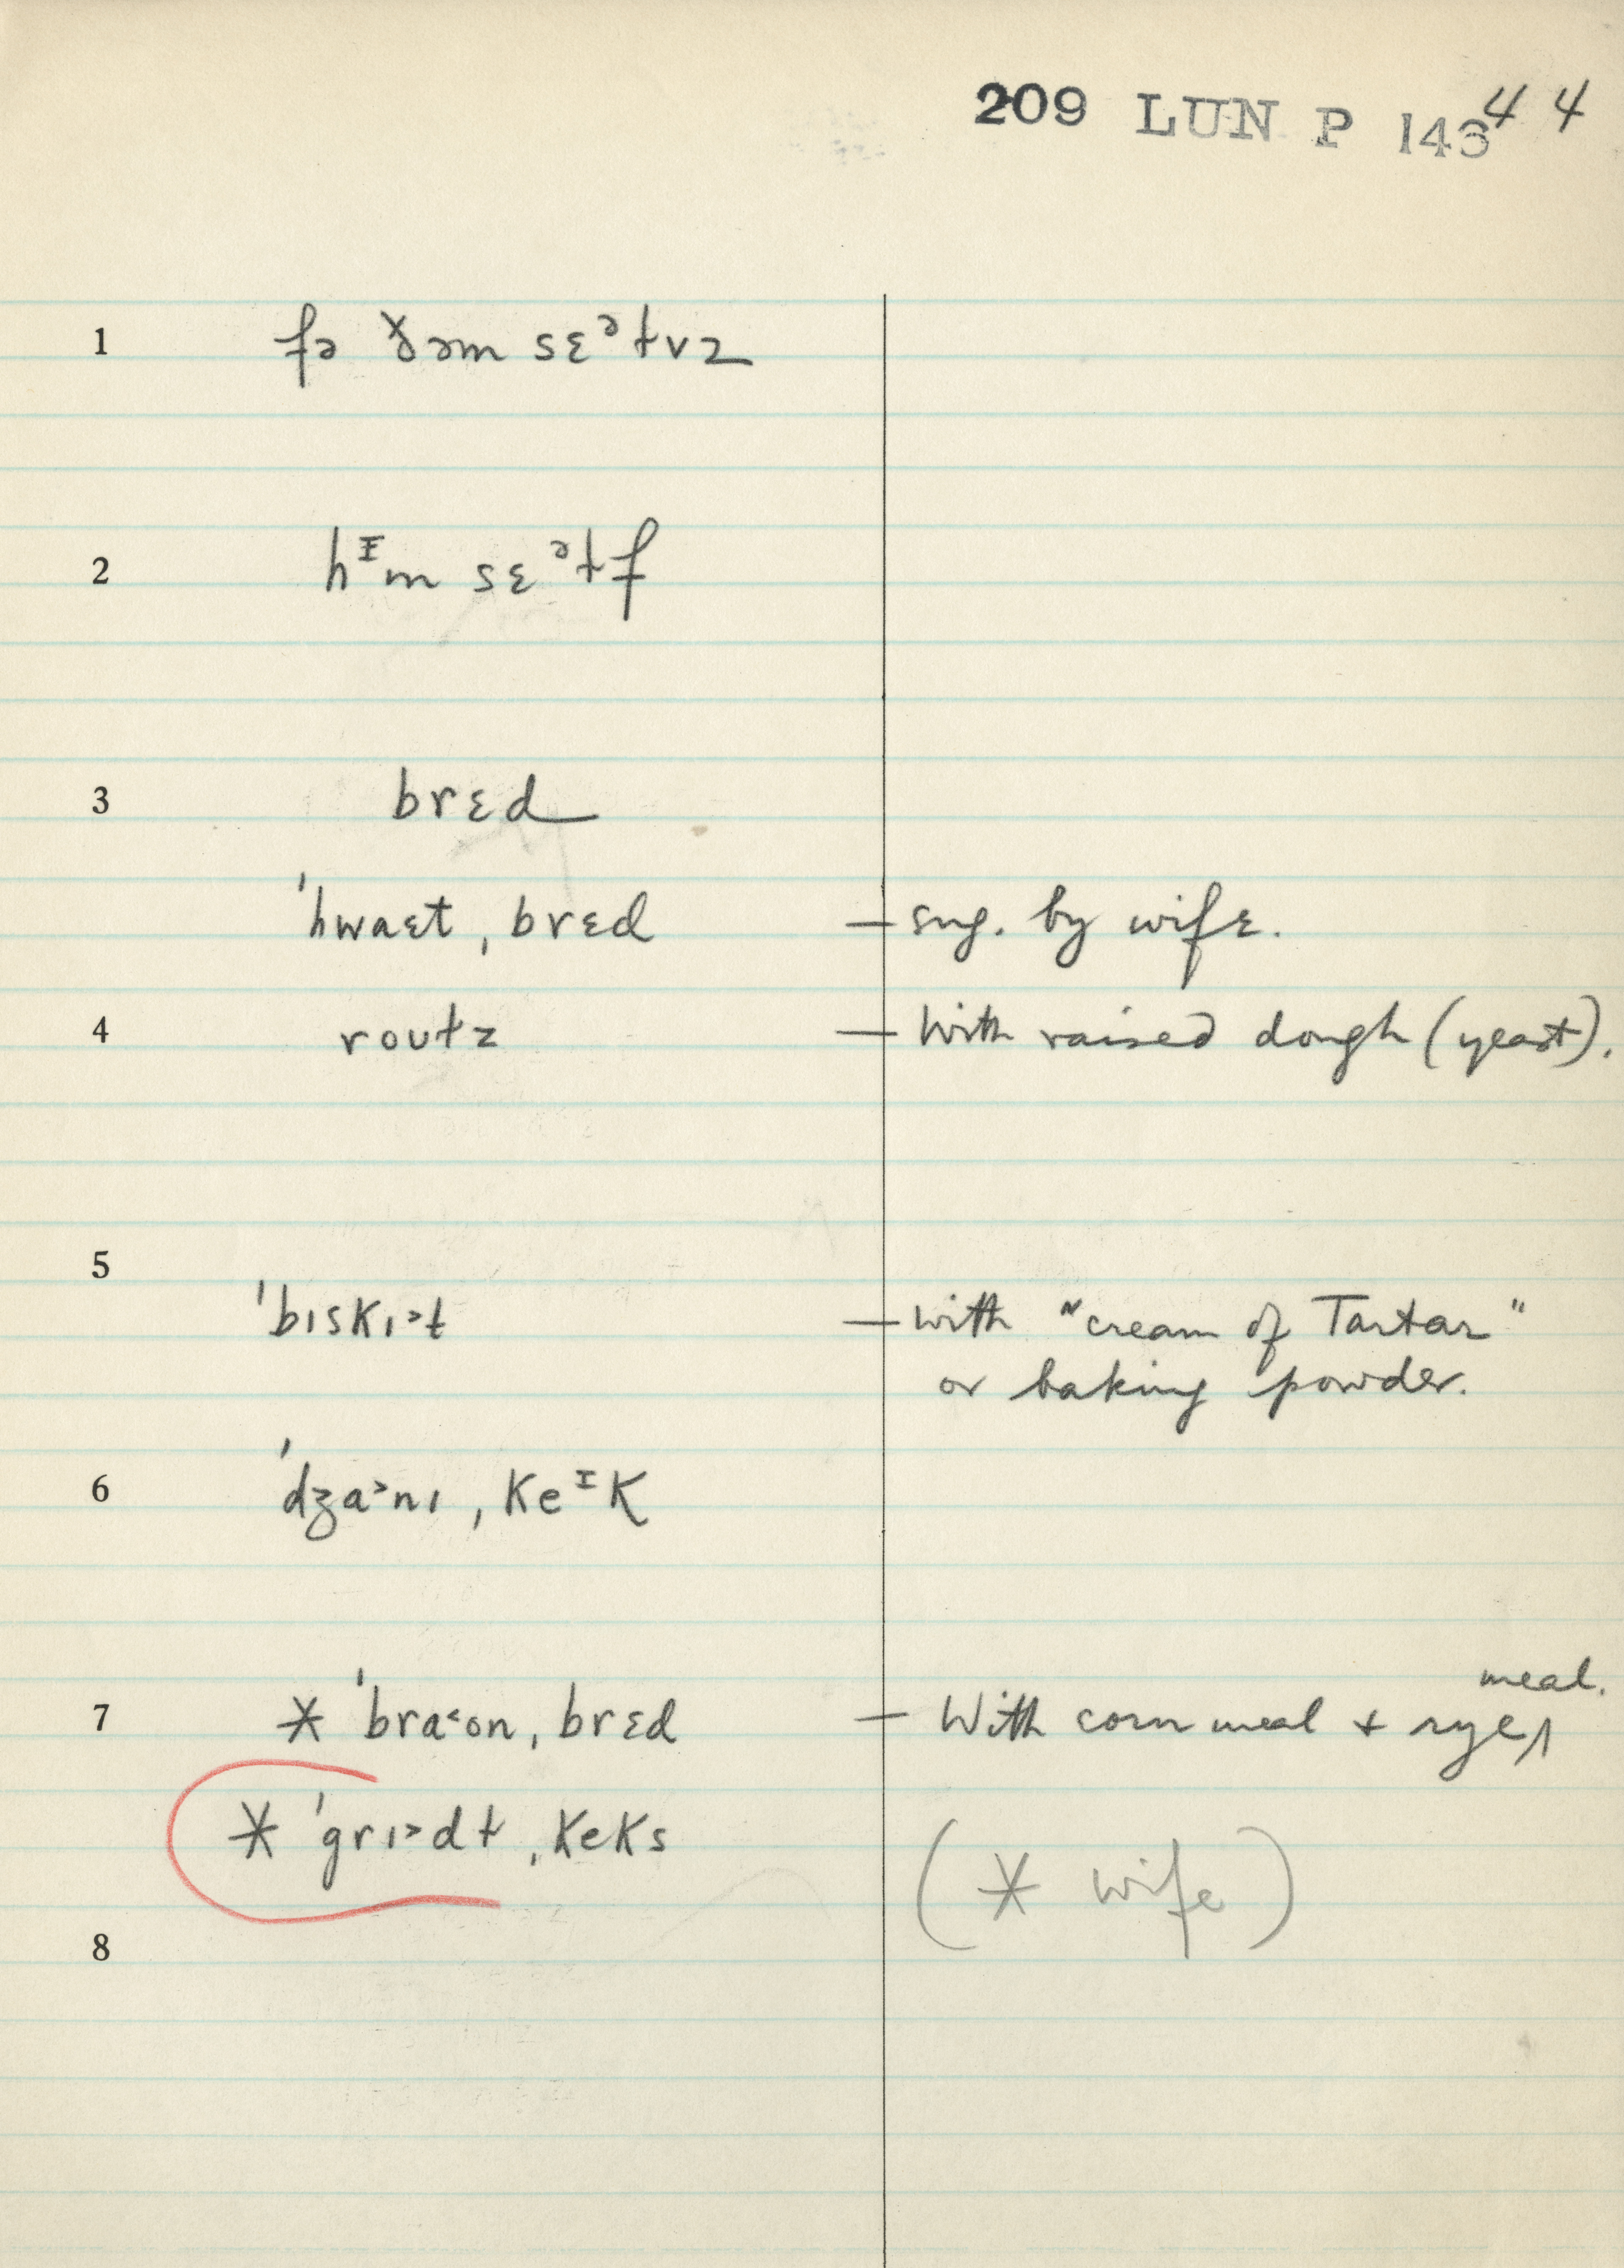 209 LUN P 143 44
1 fə ðəm sɛᵊɫvz
2 hᶦm sɛᵊɫf
3 brɛd
ˈhwaɛt ˌbrɛd — sug. by wife.
4 rouɫz — With raised dough (yeast).
5
ˈbɪskɪ˃t — with "cream of Tartar"
or baking powder.
6 ˈdʒa˃nɪ ˌkeᶦk
meal.
7 * ˈbra˂on ˌbrɛd — With corn meal + rye ʌ
* ˈgrɪ˃dɫ ˌkeks
(* wife)
8